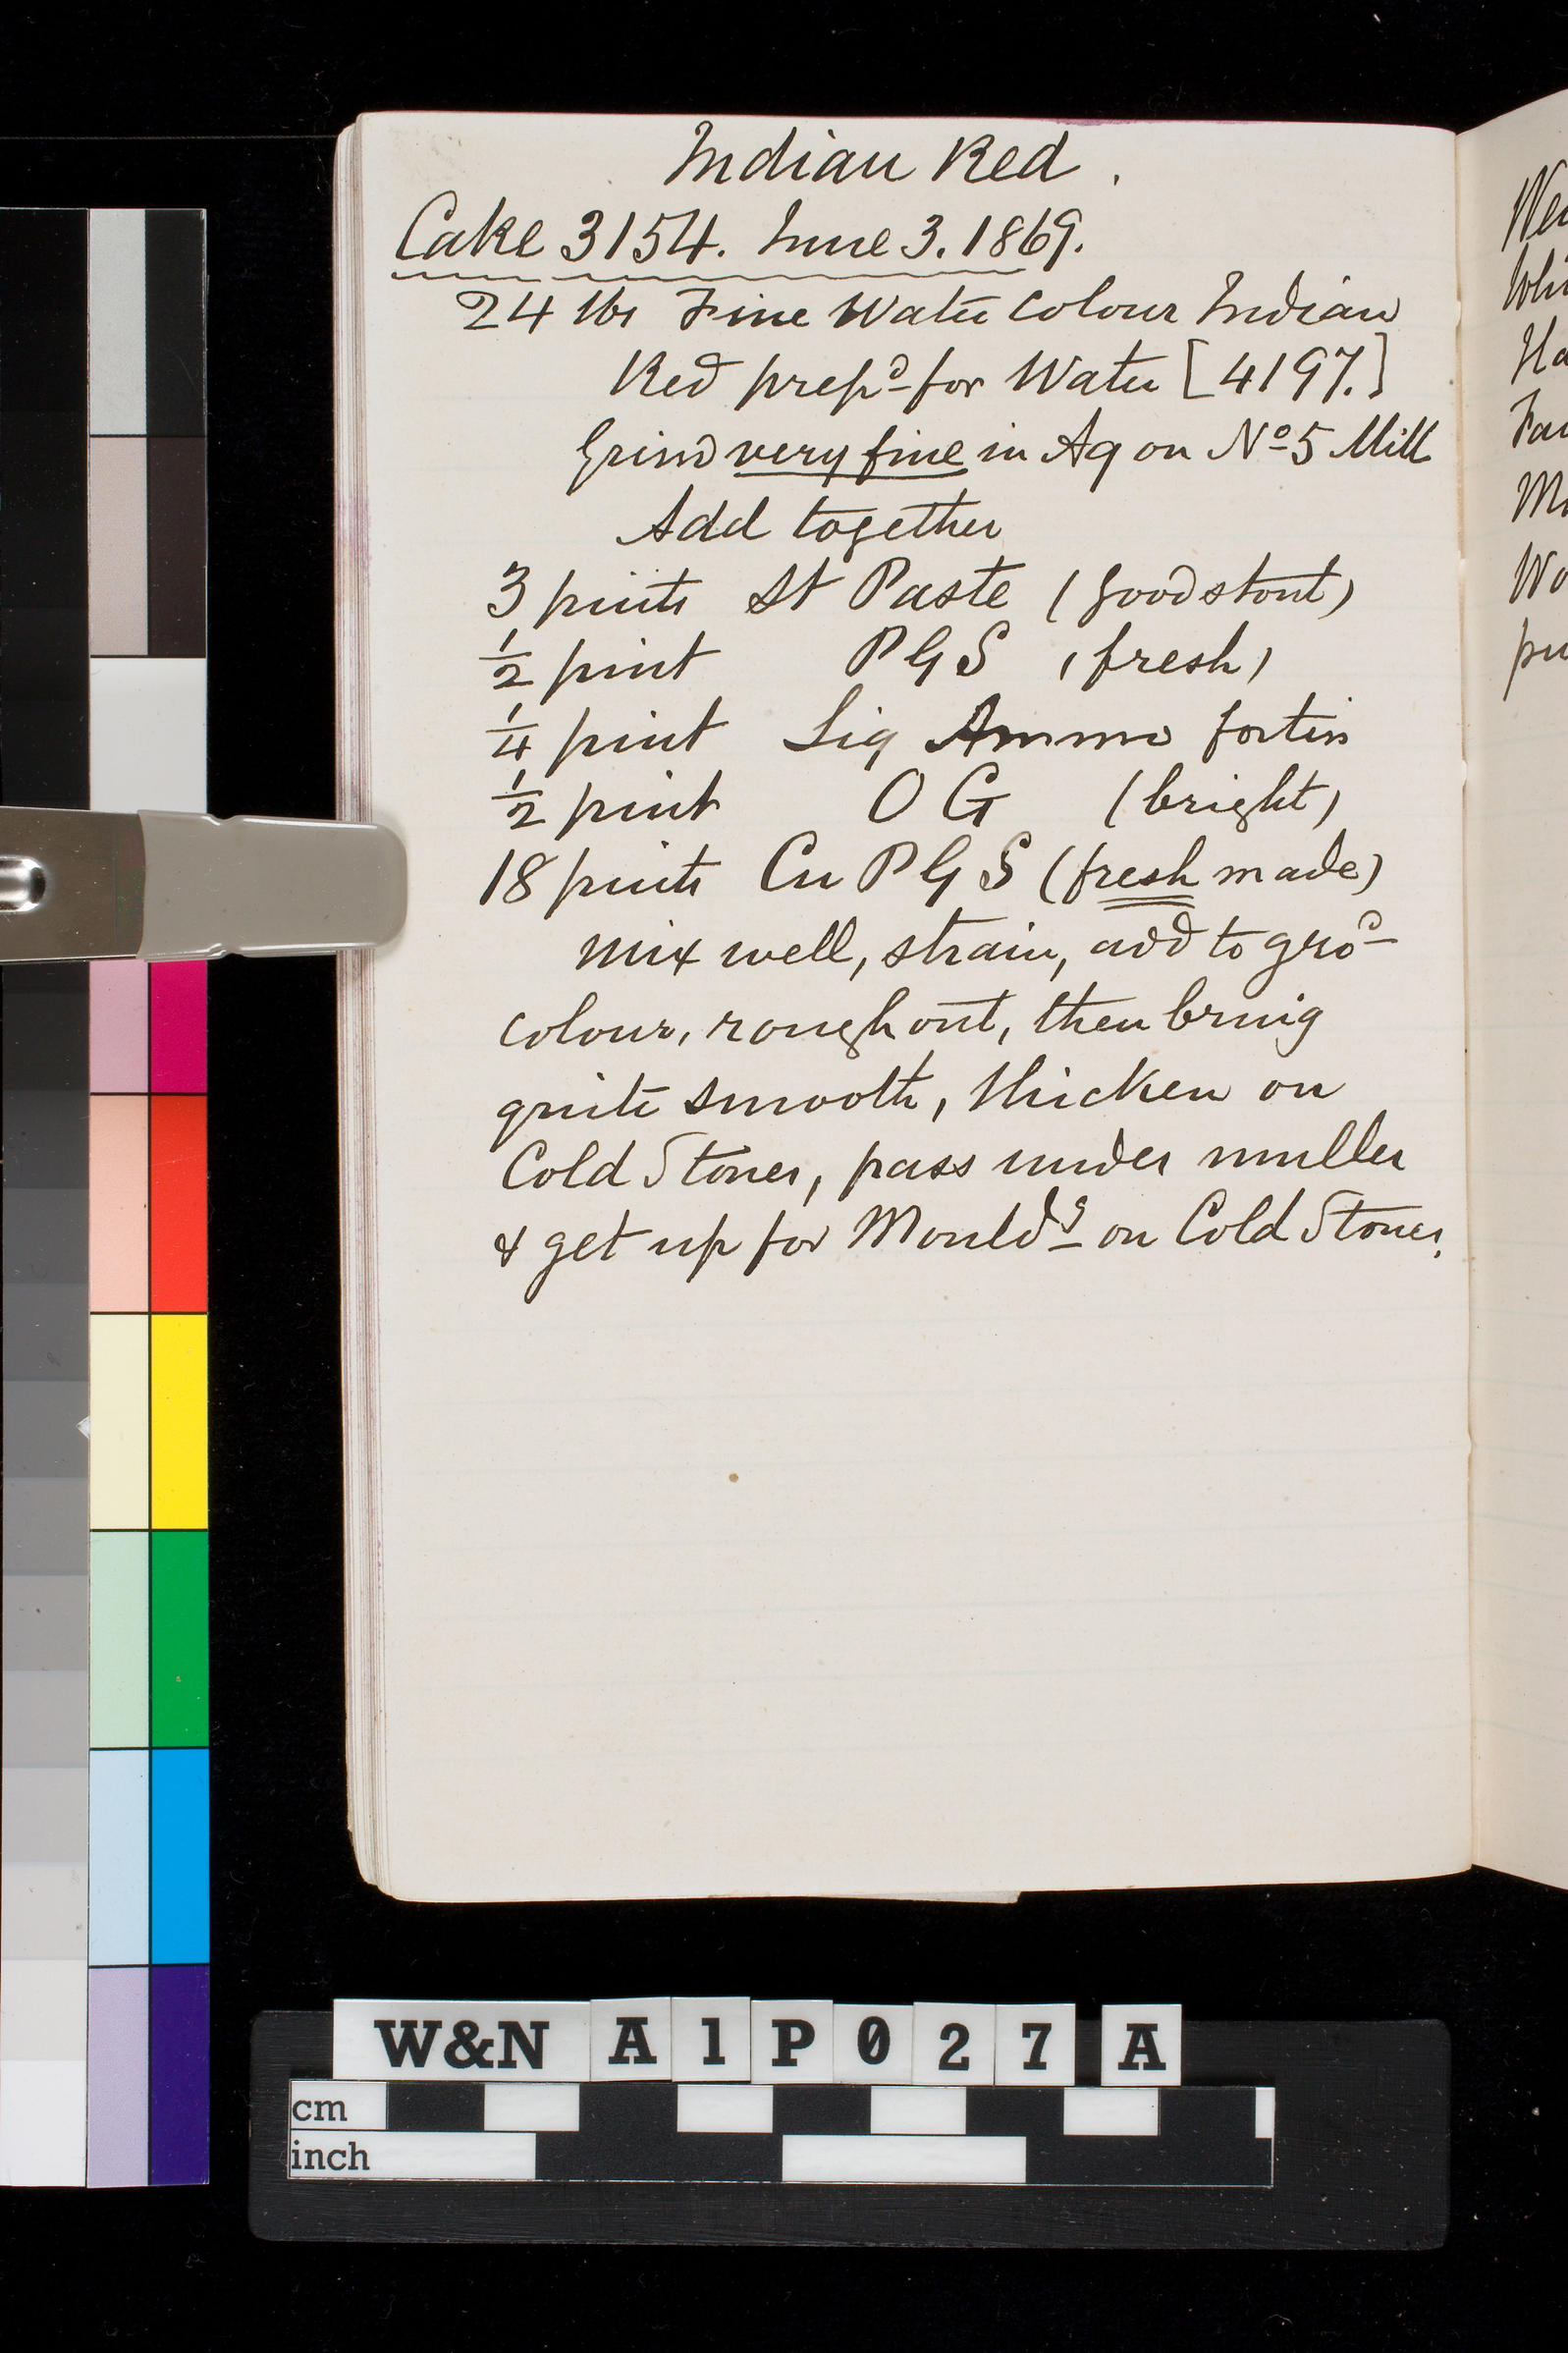 Indian Red.
Cake 3154. June 3. 1869.
24 lbs Fine Water Colour Indian
Red prepd for Water [4197.]
Grind very fine in Aq on No 5 Mill
Add together
3 pints St Paste (good stout)
1/2 pint PGS (fresh)
1/4 pint Liq Ammo fortis
1/2 pint OG (bright)
18 pints Cu PGS (fresh made)
mix well, strain, add to grod
colour, rough out, then bring
quite smooth, thicken on
Cold Stones, pass under muller
& get up for Mouldg on Cold Stones.
W&N A1P027 A
cm
inch